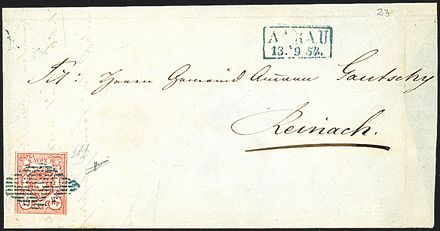 23
AARAU
13. 9 54.
Tit: Herrn Gemeind Ammann Gautschy
Reinach.
RAYON